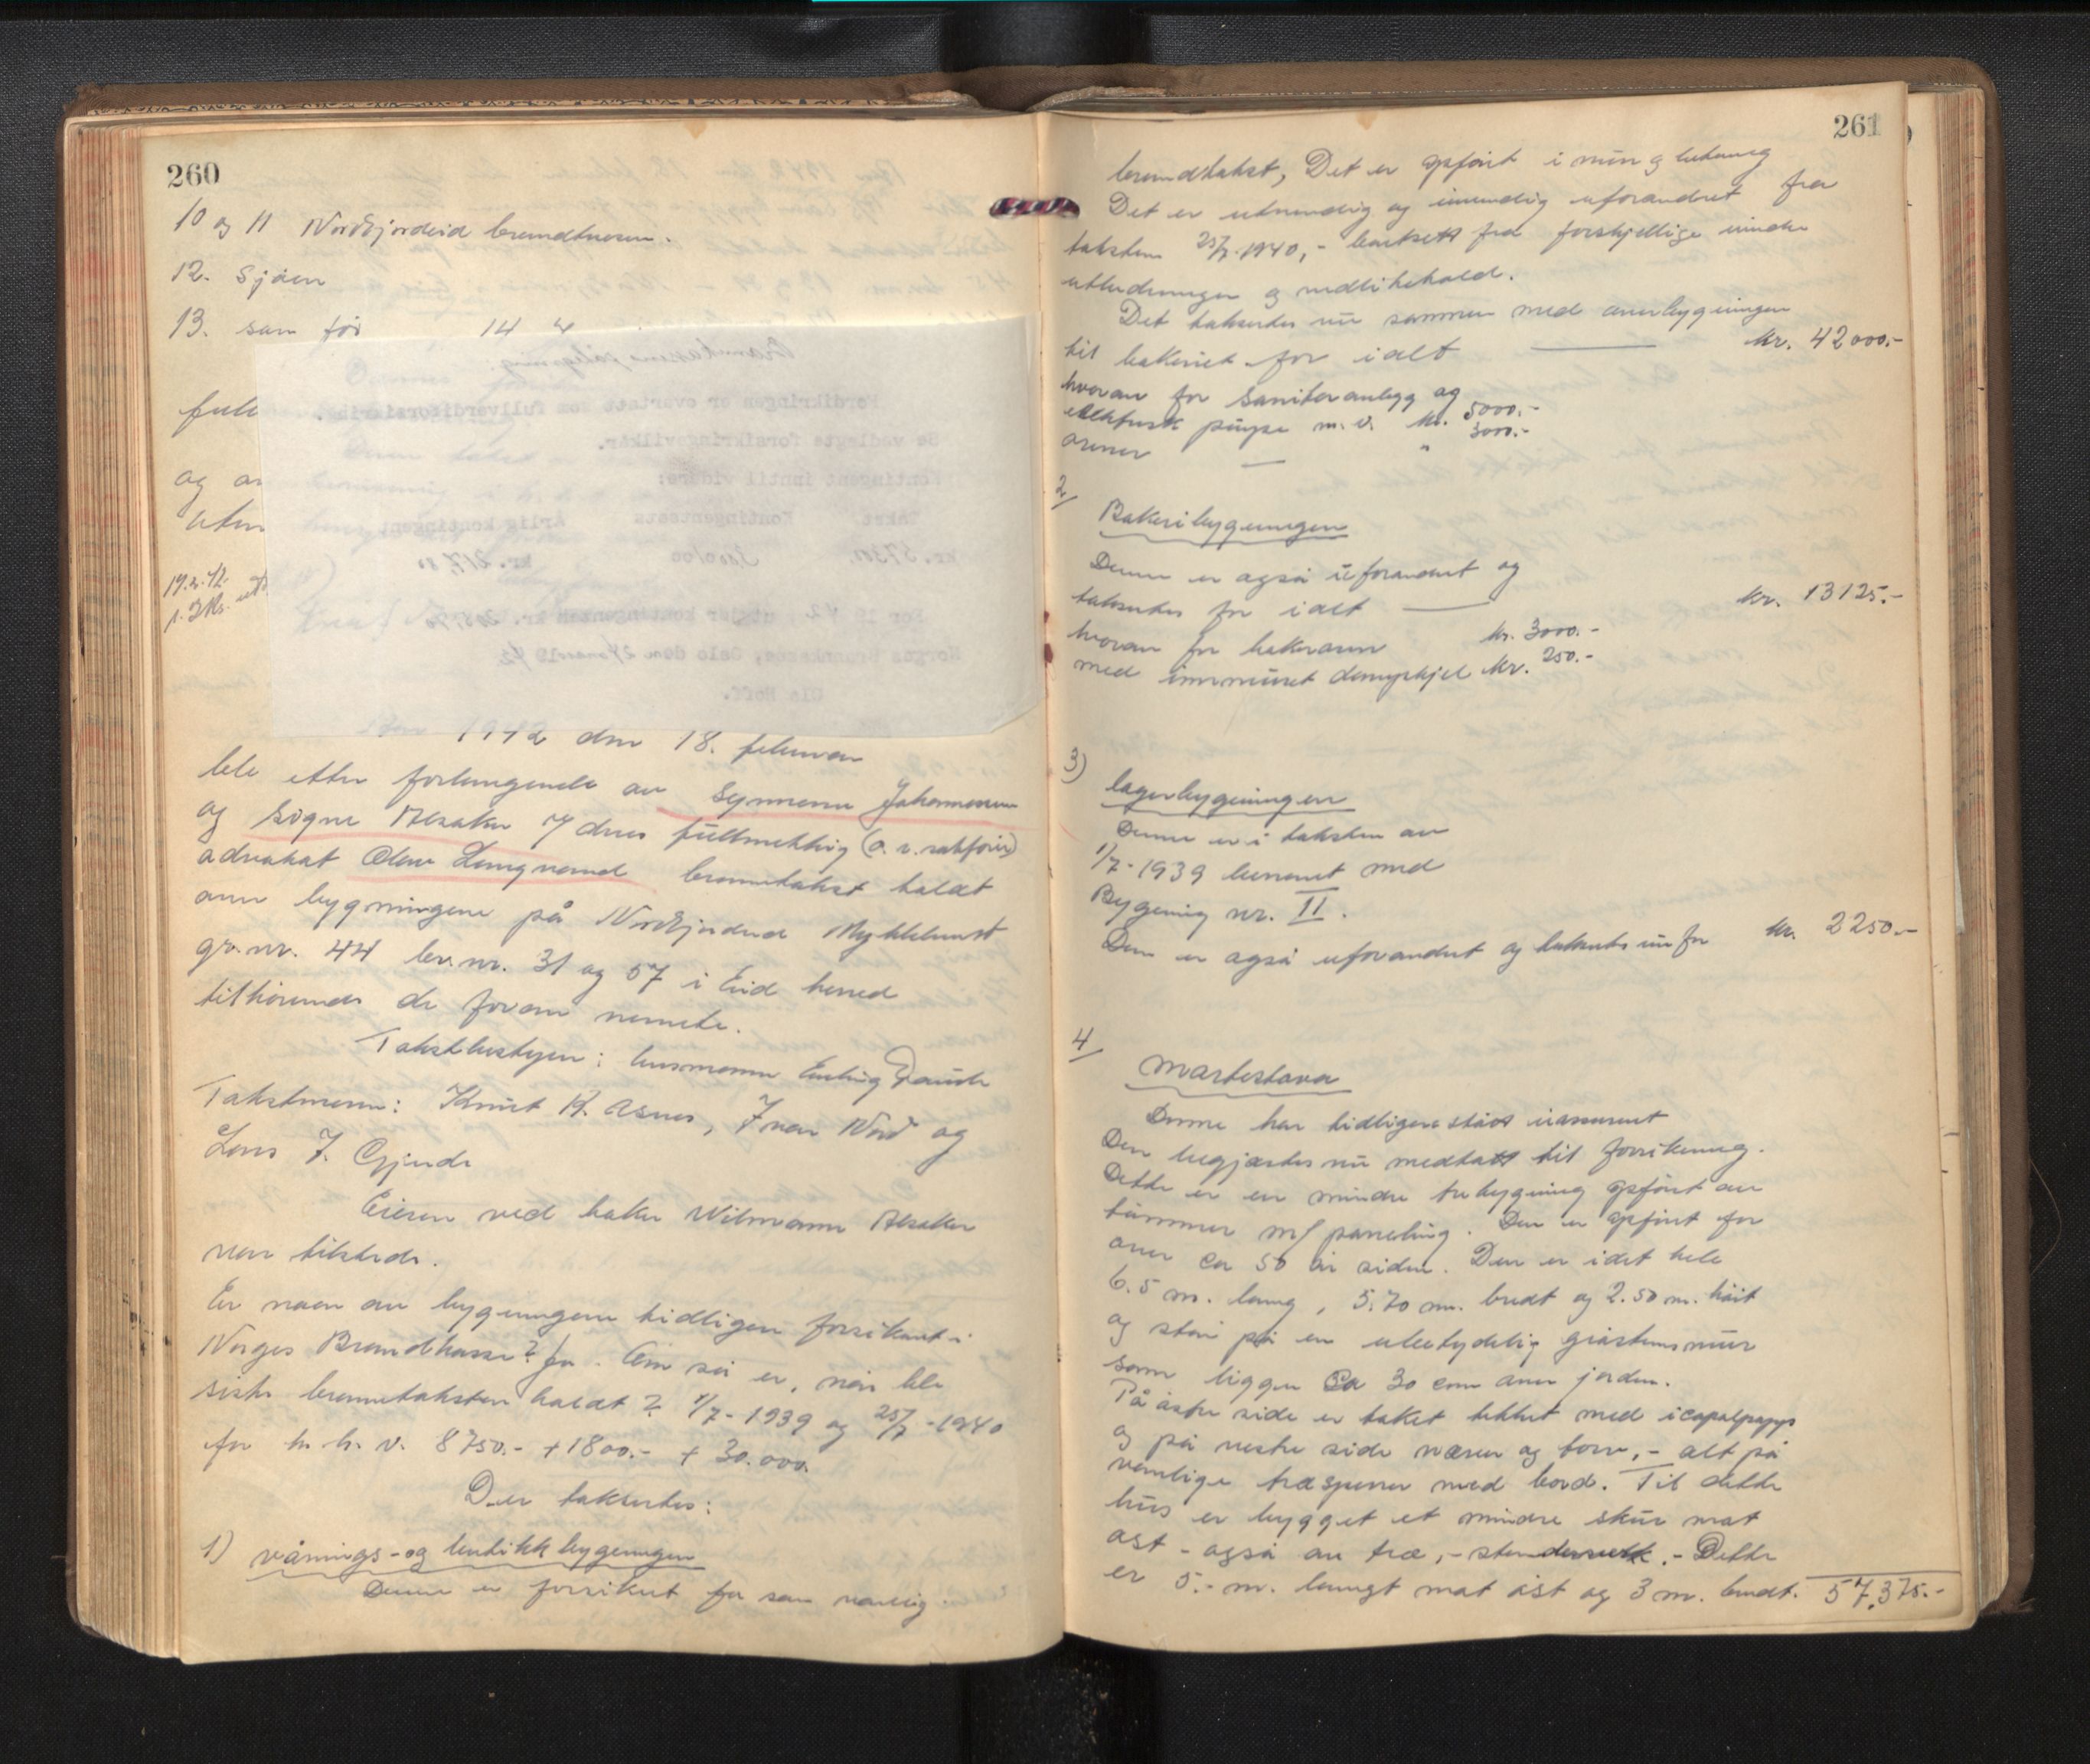 260
10 og 11 Nordfjordeid brandvesen.
12. Sjöen
13. som för 14 4
full
og an
uten
19.2.42.
Branntakstens påtegning.
Forsikringen er overlatt som fullverdiforsikring.
Se vedlagte forsikringsvilkår.
Kontingent inntil videre:
Takst Kontingentsats Årlig kontingent
kr. 57300 kr. 217.
For 19 42 utgjør kontingenten kr.
Norges Brannkasse, Oslo den 19 42
Ole Hoff.
1942 den 18. februar
ble etter forlangende av Synneva Johannessen
og Signe Alsaker v/ deres fullmektig (o. r. sakförer)
advokat Olav Langeland brannetakst haldt
over bygningene på Nordfjordeid Myklebust
gr. nr. 44 br. nr. 31 og 57 i Eid herred
tilhörende de foran nevnte.
Takstbestyrer: lensmann Erling
Takstmenn: Knut K. Asnes, Ivar Nord og
Lars J. Gjerde
Eieren ved baker Wilmann Alsaker
var tilstede.
Er noen av bygningene tidligere forsikret i
Norges Brandkasse? Ja. Om så er, når ble
siste brannetaksten haldt? 1/7-1939 og 25/7-1940
for h. h. v. 8750.- + 1800.- + 30.000.
Der takseres:
1) vånings- og butikkbygningen
Denne er forsikret for som vanlig
261
brandtakst, Det er opfört i mur og betong
Det er utvendig og innvendig uforandret fra
taksten 25/7-1940,- bortsett fra forskjellige mindre
utbedringer og vedlikehold.
Det takseres nu sammen med overbygningen
til bakeriet for ialt kr. 42000.-
hvorav for sanitæranlegg og
elektrisk pumpe m. v. kr. 5000.-
ovner " 3000.-
2/
Bakeribygningen
Denne er også uforandret og
takseres for ialt kr. 13125.-
hvorav for bakerovn kr. 3000.-
med innmuret dampkjel kr. 250.-
3)
lagerbygningen
Denne er i taksten av
1/7-1939 benevnt med
Bygning nr. II.
Den er også uforandret og takseres nu for kr. 2250.-
4/
Martestova
Denne har tidligere stått uassurert
Den begjæres nu medtatt til forsikring.
Dette er en mindre trebygning opfört av
tömmer m/ paneling. Den er opfört for
over ca 50 år siden. Den er i det hele
6.5 m. lang, 5.70 m. bredt og 2.50 m. höit
og står på en ubetydelig gråstensmur
som ligger ca 30 cm over jorden.
På östre side er taket tekket med icopalpapp
og på vestre side never og torv,- alt på
vanlige træsperrer med bord. Til dette
hus er bygget et mindre skur mot
öst - også av træ,- stenderverk.- Dette
er 5.- m. langt mot öst og 3 m. bredt. 57.375.-